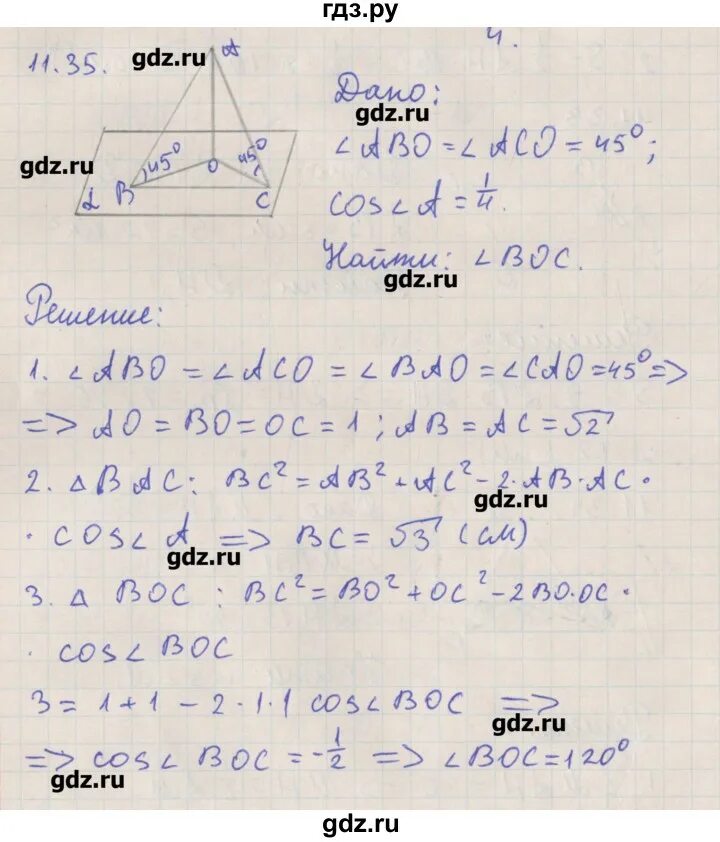 гдз.ру
4.
11.35.
gdz.ru
A
45°
45°
O
B
C
α
gdz.ru
Дано:
gdz.ru
∠ABO = ∠ACO = 45°;
cos∠A = 1/4.
Найти: ∠BOC.
gdz.ru
Решение:
1. ∠ABO = ∠ACO = ∠BAO = ∠CAO = 45° =>
=> AO = BO = OC = 1; AB = AC = √2
2. △BAC: BC² = AB² + AC² - 2·AB·AC·
gdz.ru
· cos∠A => BC = √3 (см)
gdz.ru
3. △ BOC: BC² = BO² + OC² - 2BO·OC·
· cos∠BOC
3 = 1 + 1 - 2·1·1 cos∠BOC =>
gdz.ru
=> cos∠BOC = -1/2 => ∠BOC = 120°
gdz.ru
gdz.ru